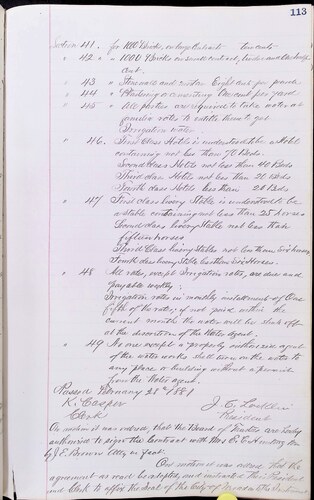 113
Section 41. for 1000 Brick, on lay Contract two cents
" 42 " 1000 Bricks on small contract, two and one half
cent.
" 43 " Stone work and Eight cent per perch
" 44 " Plastering or cementing One cent per yard
" 45 " All parties are required to take water at
rates to entitle them to get
Irrigation water
" 46. First Class Hotels is understood to be a Hotel
containing not less than 70 Beds.
Second Class Hotels not less than 40 Beds
Third class Hotels not less than 20 Beds
Fourth class Hotels less than 20 Beds
" 47 First class livery Stable is understood to be
a stable containing not less than 25 horses
Second class livery Stable not less than
fifteen horses
Third Class livery Stables not less than six horses
Fourth class livery Stable less than Six Horses.
" 48 All rates, except Irrigation rates, are due and
payable monthly.
Irrigation rates in monthly installments of One
fifth of the rates, if not paid within the
current month the water will be shut off
at the discretion of the Water Agent.
" 49 No one except a properly authorized agent
of the water works shall turn on the water to
any place or building without a permit
from the Water agent.
Passed February 28th 1881
K. Casper J.
Clerk President
On motion it was ordered, that the Board of Trustees are hereby
authorized to sign the Contract with
by J. E. Brown Atty in fact.
On motion it was ordered that the
agreement as read be adopted, and instruct the President
and Clerk to affix the Seal of the City